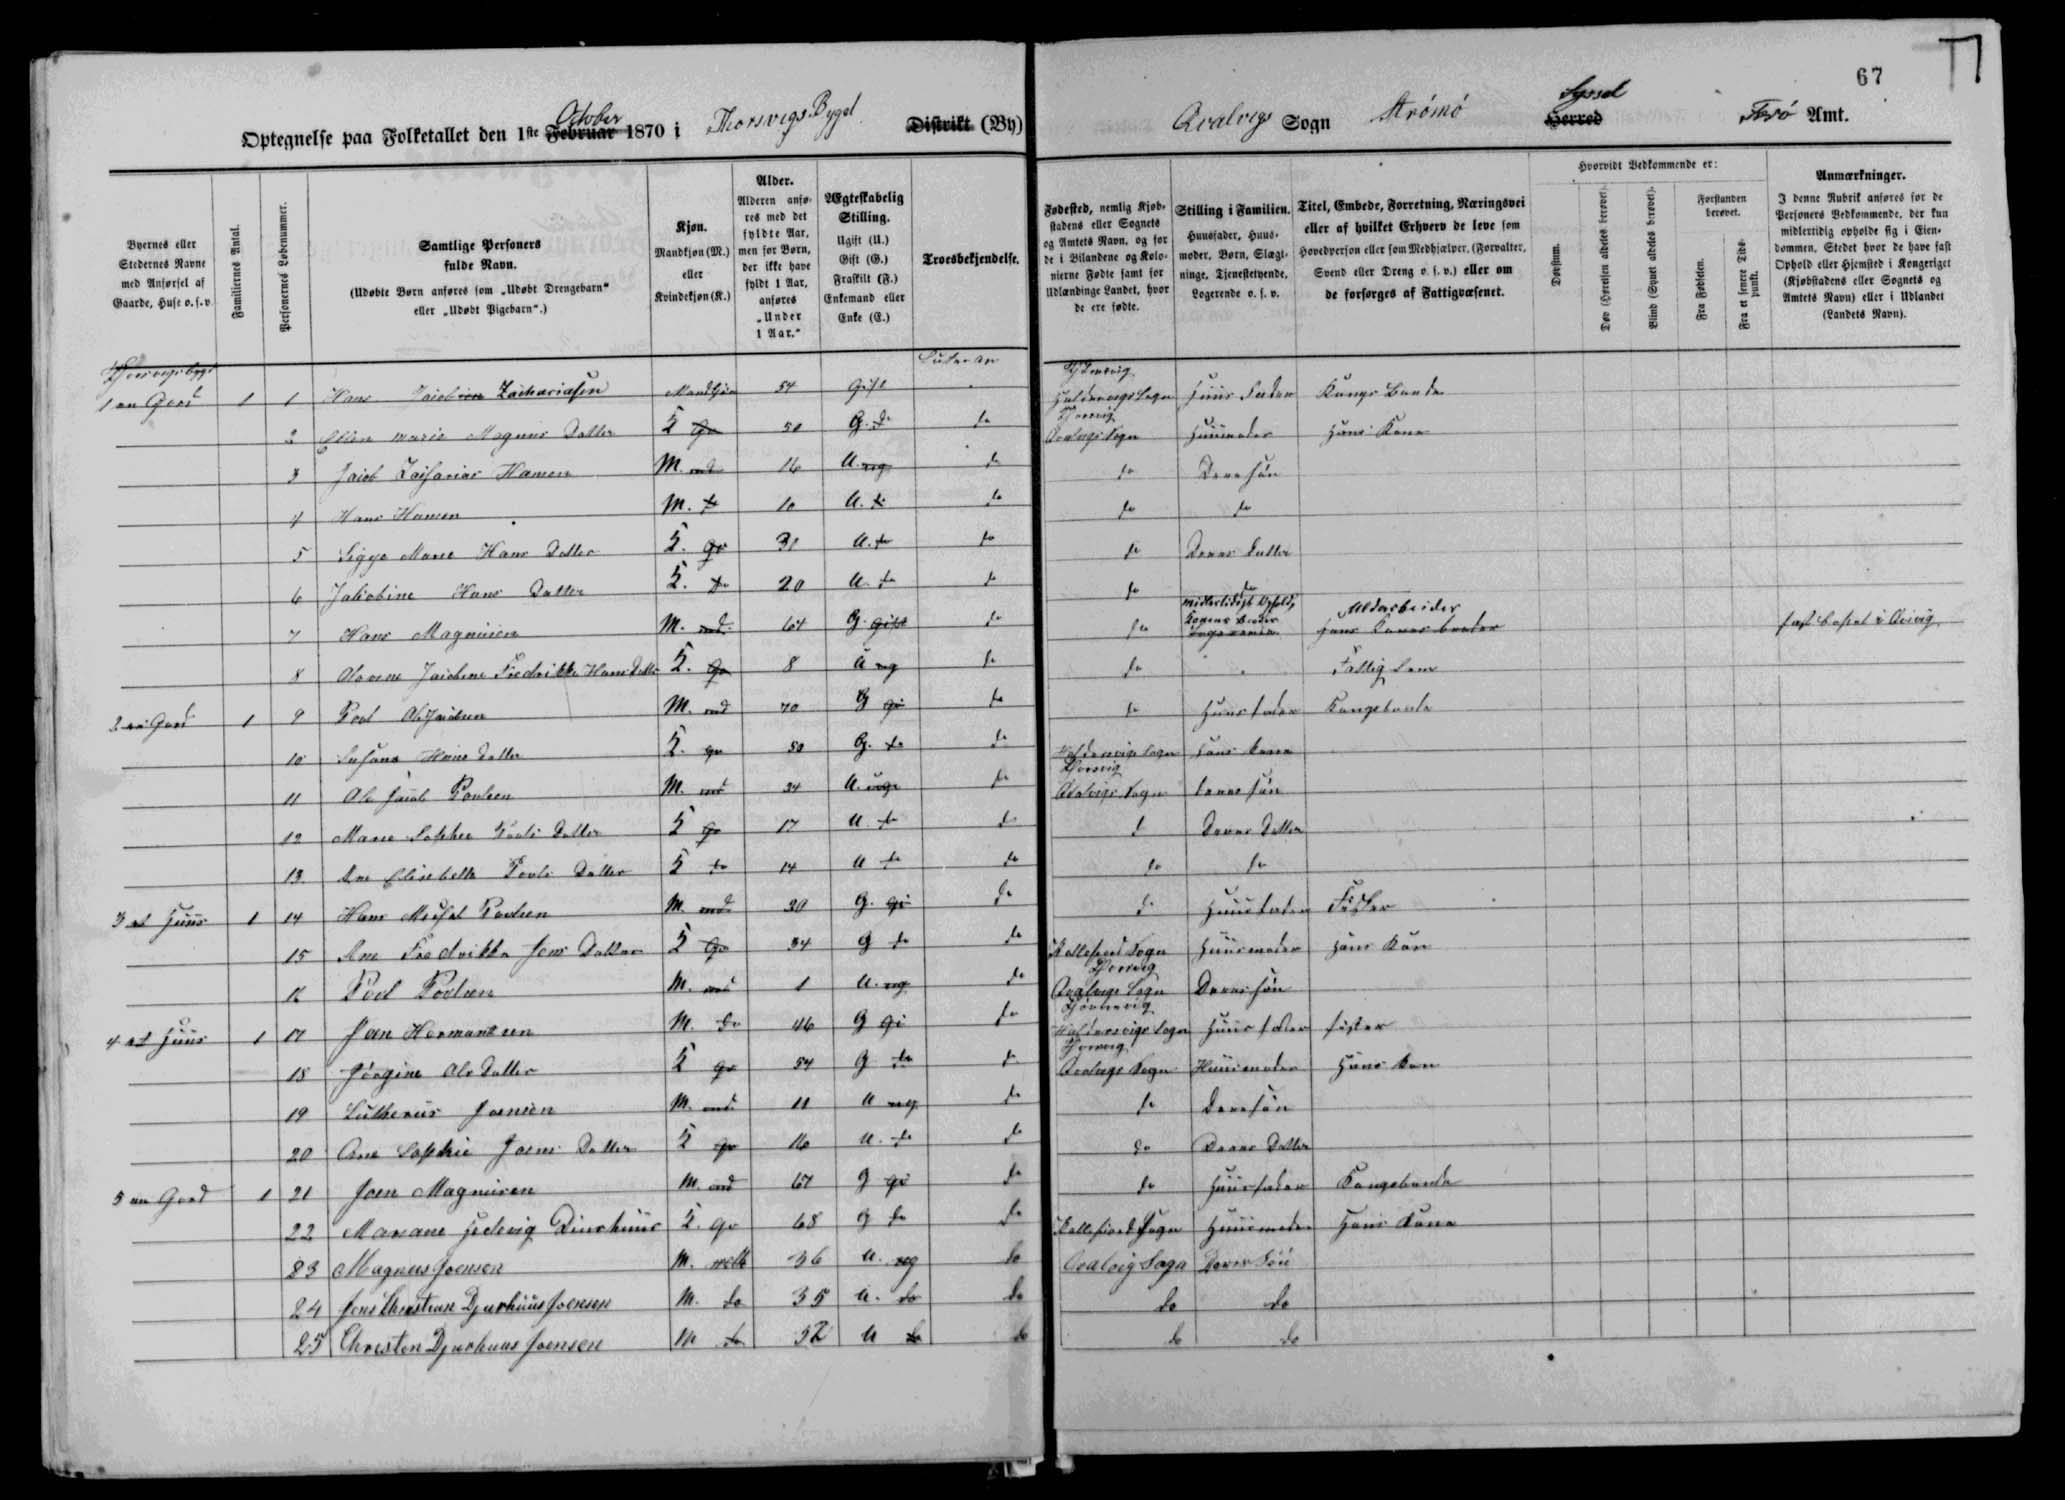 67
Optegnelse paa Folketallet den 1ste Februar October 1870 i Thorsvigs Bygd Distrikt (By)
Qvalvigs Sogn Strömö Herred Syssel Færö Amt.
Byernes eller Stedernes Navne med Anførsel af Gaarde, Huse o. s. v.
Familiernes Antal.
Personernes Løbenummer.
Samtlige Personers fulde Navn.
(Udøbte Børn anføres som „Udøbt Drengebarn“ eller „Udøbt Pigebarn“.)
Kjøn.
Mandkjøn (M.) eller Kvindekjøn (K.)
Alder.
Alderen anføres med det fyldte Aar, men for Børn, der ikke have fyldt 1 Aar, anføres „Under 1 Aar.“
Ægteskabelig Stilling.
Ugift (U.) Gift (G.) Fraskilt (F.) Enkemand eller Enke (E.)
Troesbekjendelse.
Fødested, nemlig Kjøbstadens eller Sognets og Amtets Navn, og for de i Bilandene og Kolonierne Fødte samt for Udlændinge Landet, hvor de ere fødte.
Stilling i Familien.
Huusfader, Huusmoder, Børn, Slægtninge, Tjenestetyende, Logerende o. s. v.
Titel, Embede, Forretning, Næringsvei eller af hvilket Erhverv de leve som Hovedperson eller som Medhjælper, (Forvalter, Svend eller Dreng o. s. v.) eller om de forsørges af Fattigvæsenet.
Hvorvidt Vedkommende er:
Døvstum.
Døv (Hørelsen aldeles berøvet).
Blind (Synet aldeles berøvet).
Forstanden berøvet.
Fra Fødselen.
Fra et senere Tidspunkt.
Anmærkninger.
I denne Rubrik anføres for de Personers Vedkommende, der kun midlertidig opholde sig i Eiendommen, Stedet hvor de have fast Ophold eller Hjemsted i Kongeriget (Kjøbstadens eller Sognets og Amtets Navn) eller i Udlandet (Landets Navn).
1 en Gaard 1 1 Hans Zachariasen Mandkjön 54 Gift Haldervigs Sogn Huus Fader Kongs Bonde
2 Ellen Marie Magnus Datter K 50 G. do do Qvalvigs Sogn Huusmoder Hans Kone
3 Jacob Zacharias Hansen M. 16 U. ug do do Deres sön
4 Hans Hansen M. do 10 U. do do do do
5 Sigga Marie Hans Datter K. 31 U. do do do Deres Datter
6 Jakobine Hans Datter K. do 20 U. do do do do
7 Hans Magnusen M. 64 G. Gift do do Konens Broder hans Kones broder
8 Jacobine Fredrikke Hans Datter K. 8 U ug do do Fattig Lem
2 en Gaard 1 9 Poul Ole Jacobsen M. 70 G gi do do Huusfader Kongsbonde
10 Susana Hans Datter K. 50 G. do do Haldervigs Sogn Hans kone
11 Ole Jacob Poulsen M. 34 U. ug do Qvalvigs Sogn Deres sön
12 Marie Sophie Pouls Datter K 17 U. do do do Deres Datter
13 Ane Elisebetha Pouls Datter K do 14 U do do do do
3 et Huus 1 14 Hans Michel Poulsen M. 30 G. gi do do Huusfader Fisker
15 Ane Fredrikka Jens Datter K 34 G do do Kollefjord Sogn Huusmoder Hans Kone
16 Poul Poulsen M. 1 U. ug do Qvalvigs Sogn Deres sön
4 et Huus 1 17 Joen Hermansen M. do 46 G gi do Haldervigs Sogn Huusfader fisker
18 Jörgine Ole Datter K 54 G do do Qvalvigs Sogn Huusmoder Hans Kone
19 Lutherus Joensen M. 11 U ug do do Deres sön
20 Ane Sophie Joens Datter K 16 U. do do do Deres Datter
5 en Gaard 1 21 Joen Magnusen M. 67 G gi do do Huusfader Kongsbonde
22 Mariane Hedevig Diurhuus K. 68 G do do Kollefiord Sogn Huusmoder Hans Kone
23 Magnus Joensen M. 36 U. ug do Qvalvig Sogn Deres Sön
24 Jens Christian Djurhuus Joensen M. do 35 U. do do do do
25 Christen Djurhuus Joensen M do 32 U do do do do